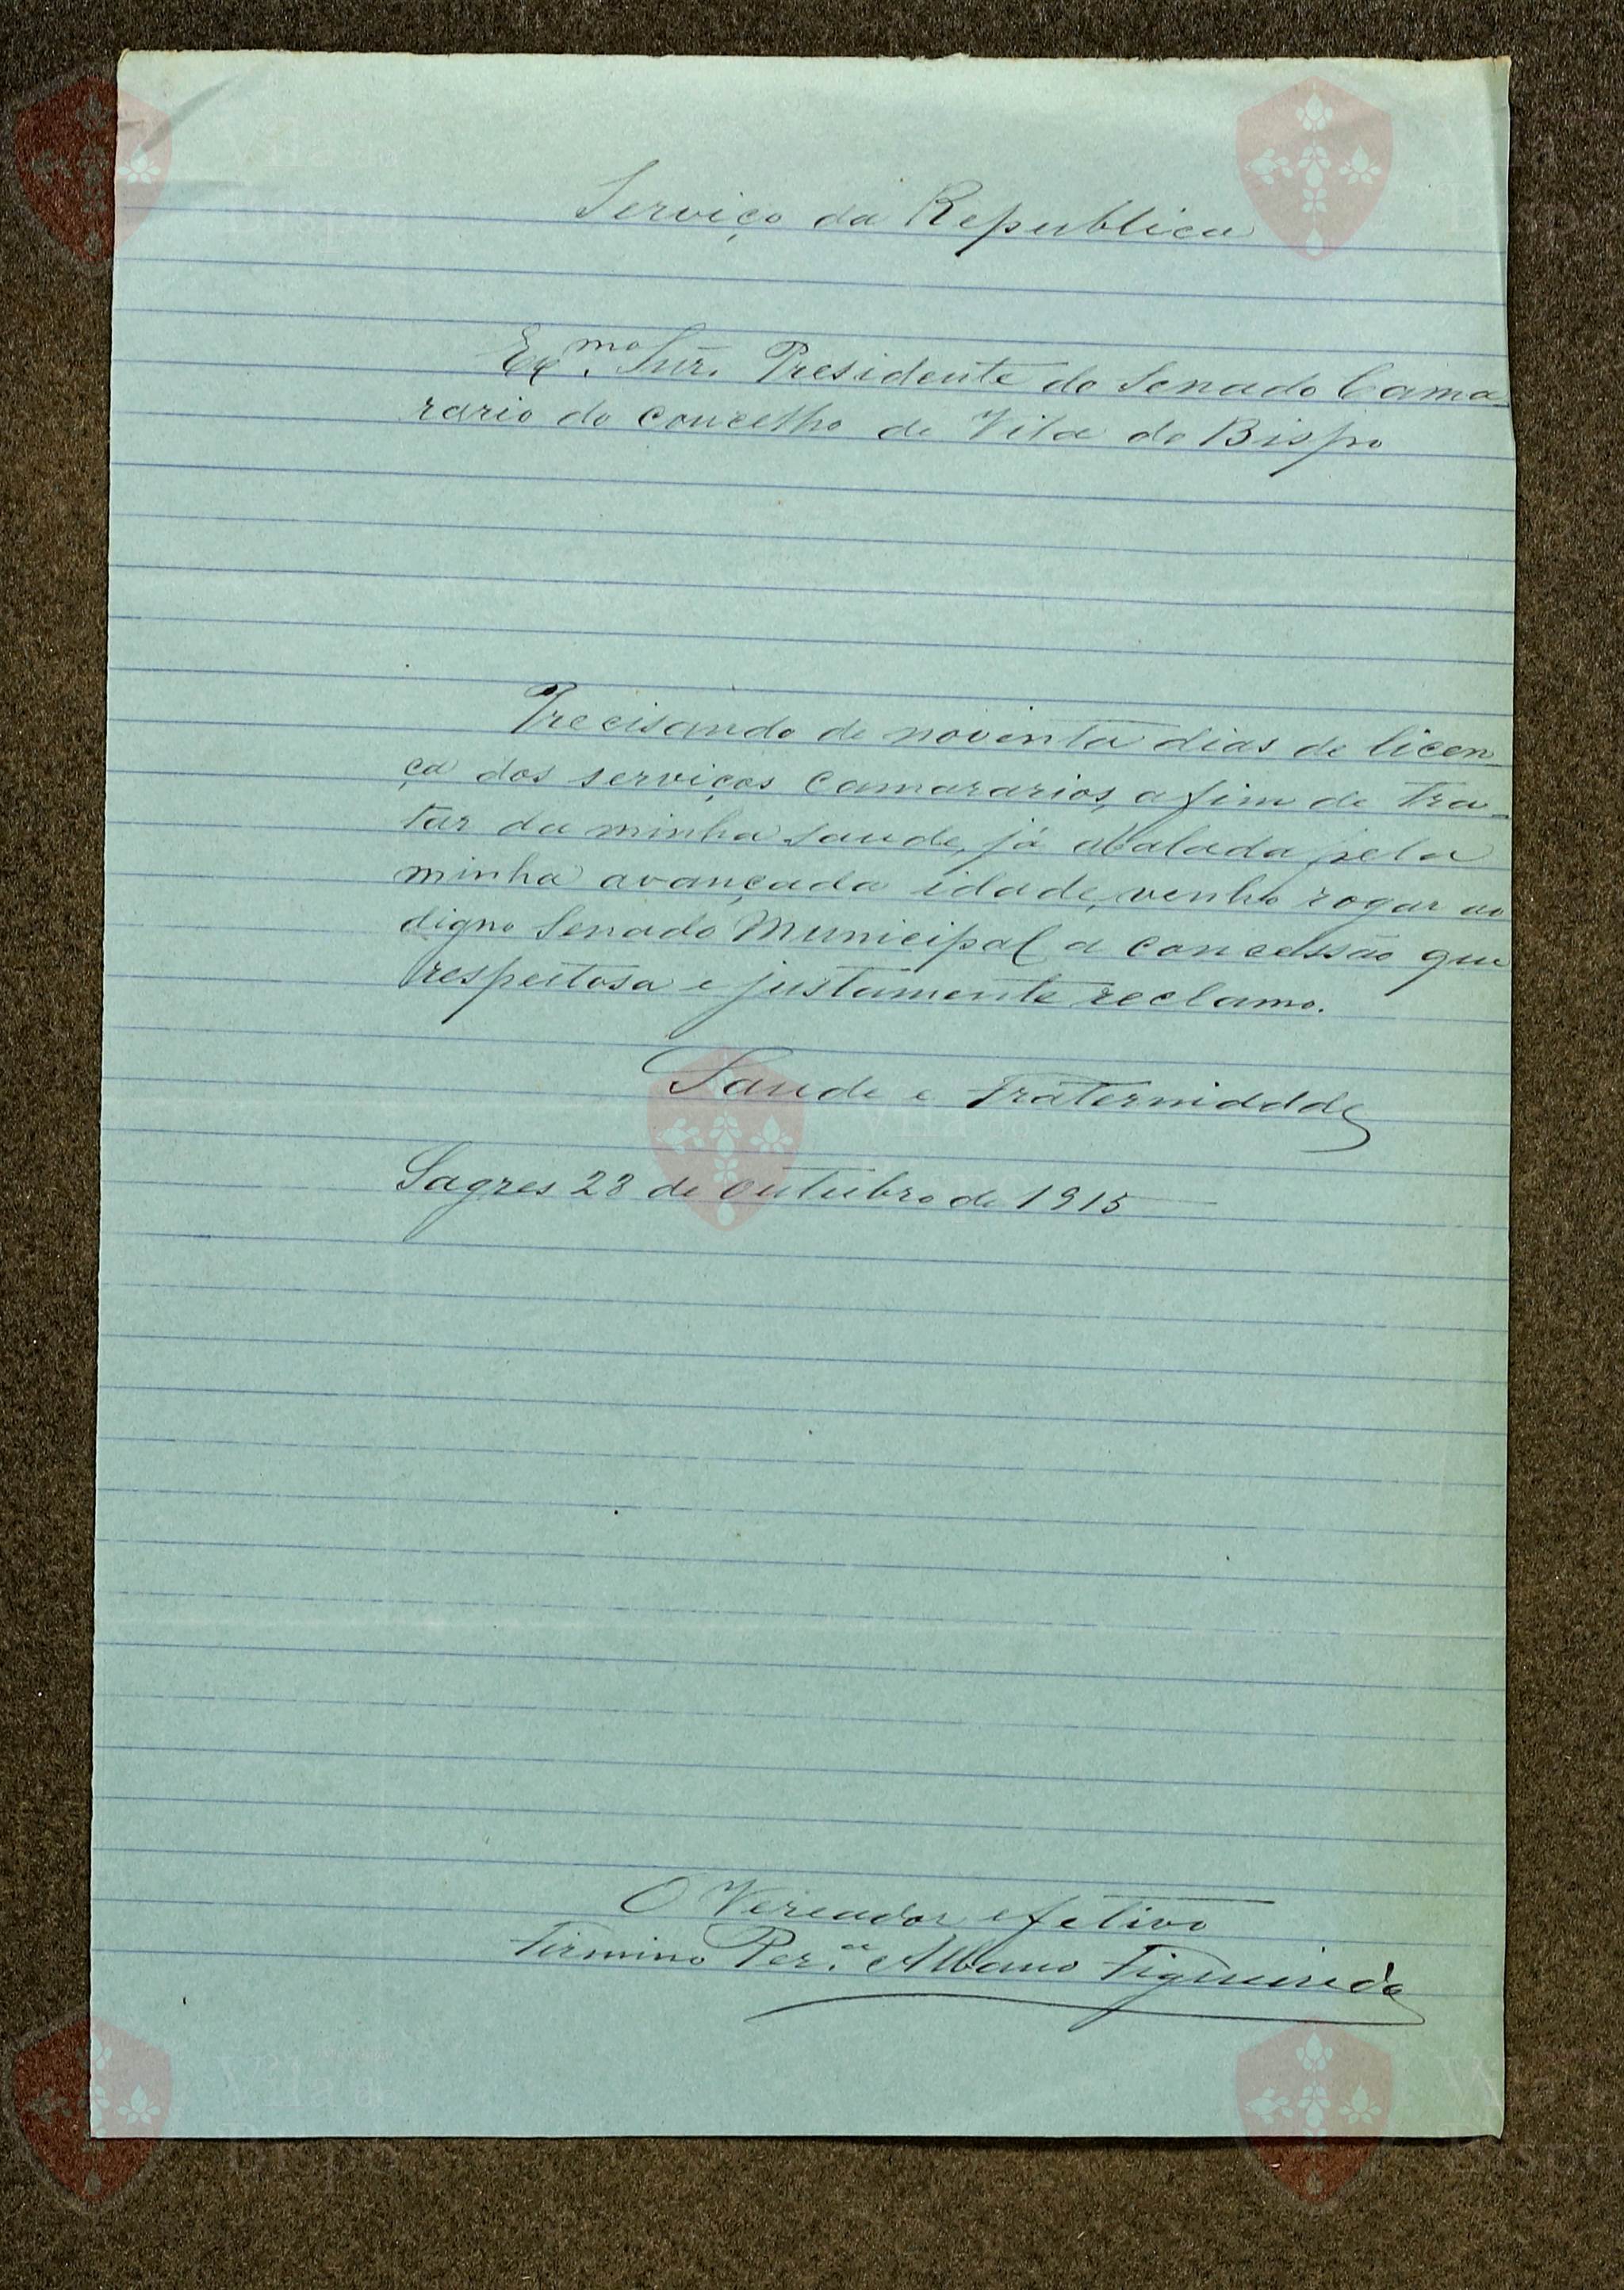 Serviço da Republica
Exmo. Snr. Presidente do Senado Cama-
rario do concelho de Vila do Bispo
Precisando de noventa dias de licen-
ça dos serviços camararios, a fim de tra-
tar da minha saude, já abalada pela
minha avançada idade, venho rogar ao
digno Senado Municipal a concessão que
respeitosa e justamente reclamo.
Saude e Fraternidade
Sagres 28 de outubro de 1915
O Vereador efetivo
Firmino Per.ª Albano Figueiredo